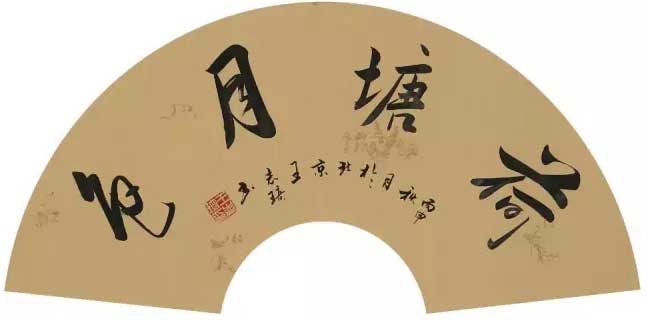 荷塘月色
丙申秋月於北京王志琦书